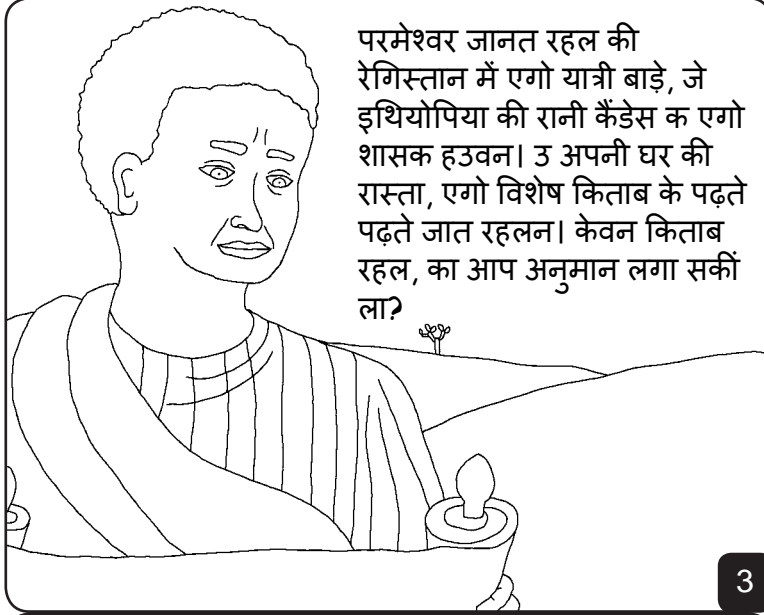 परमेश्वर जानत रहल की
रेगिस्तान में एगो यात्री बाड़े, जे
इथियोपिया की रानी कैंडेस क एगो
शासक हउवन। उ अपनी घर की
रास्ता, एगो विशेष किताब के पढ़ते
पढ़ते जात रहलन। केवन किताब
रहल, का आप अनुमान लगा सकीं
ला?
3